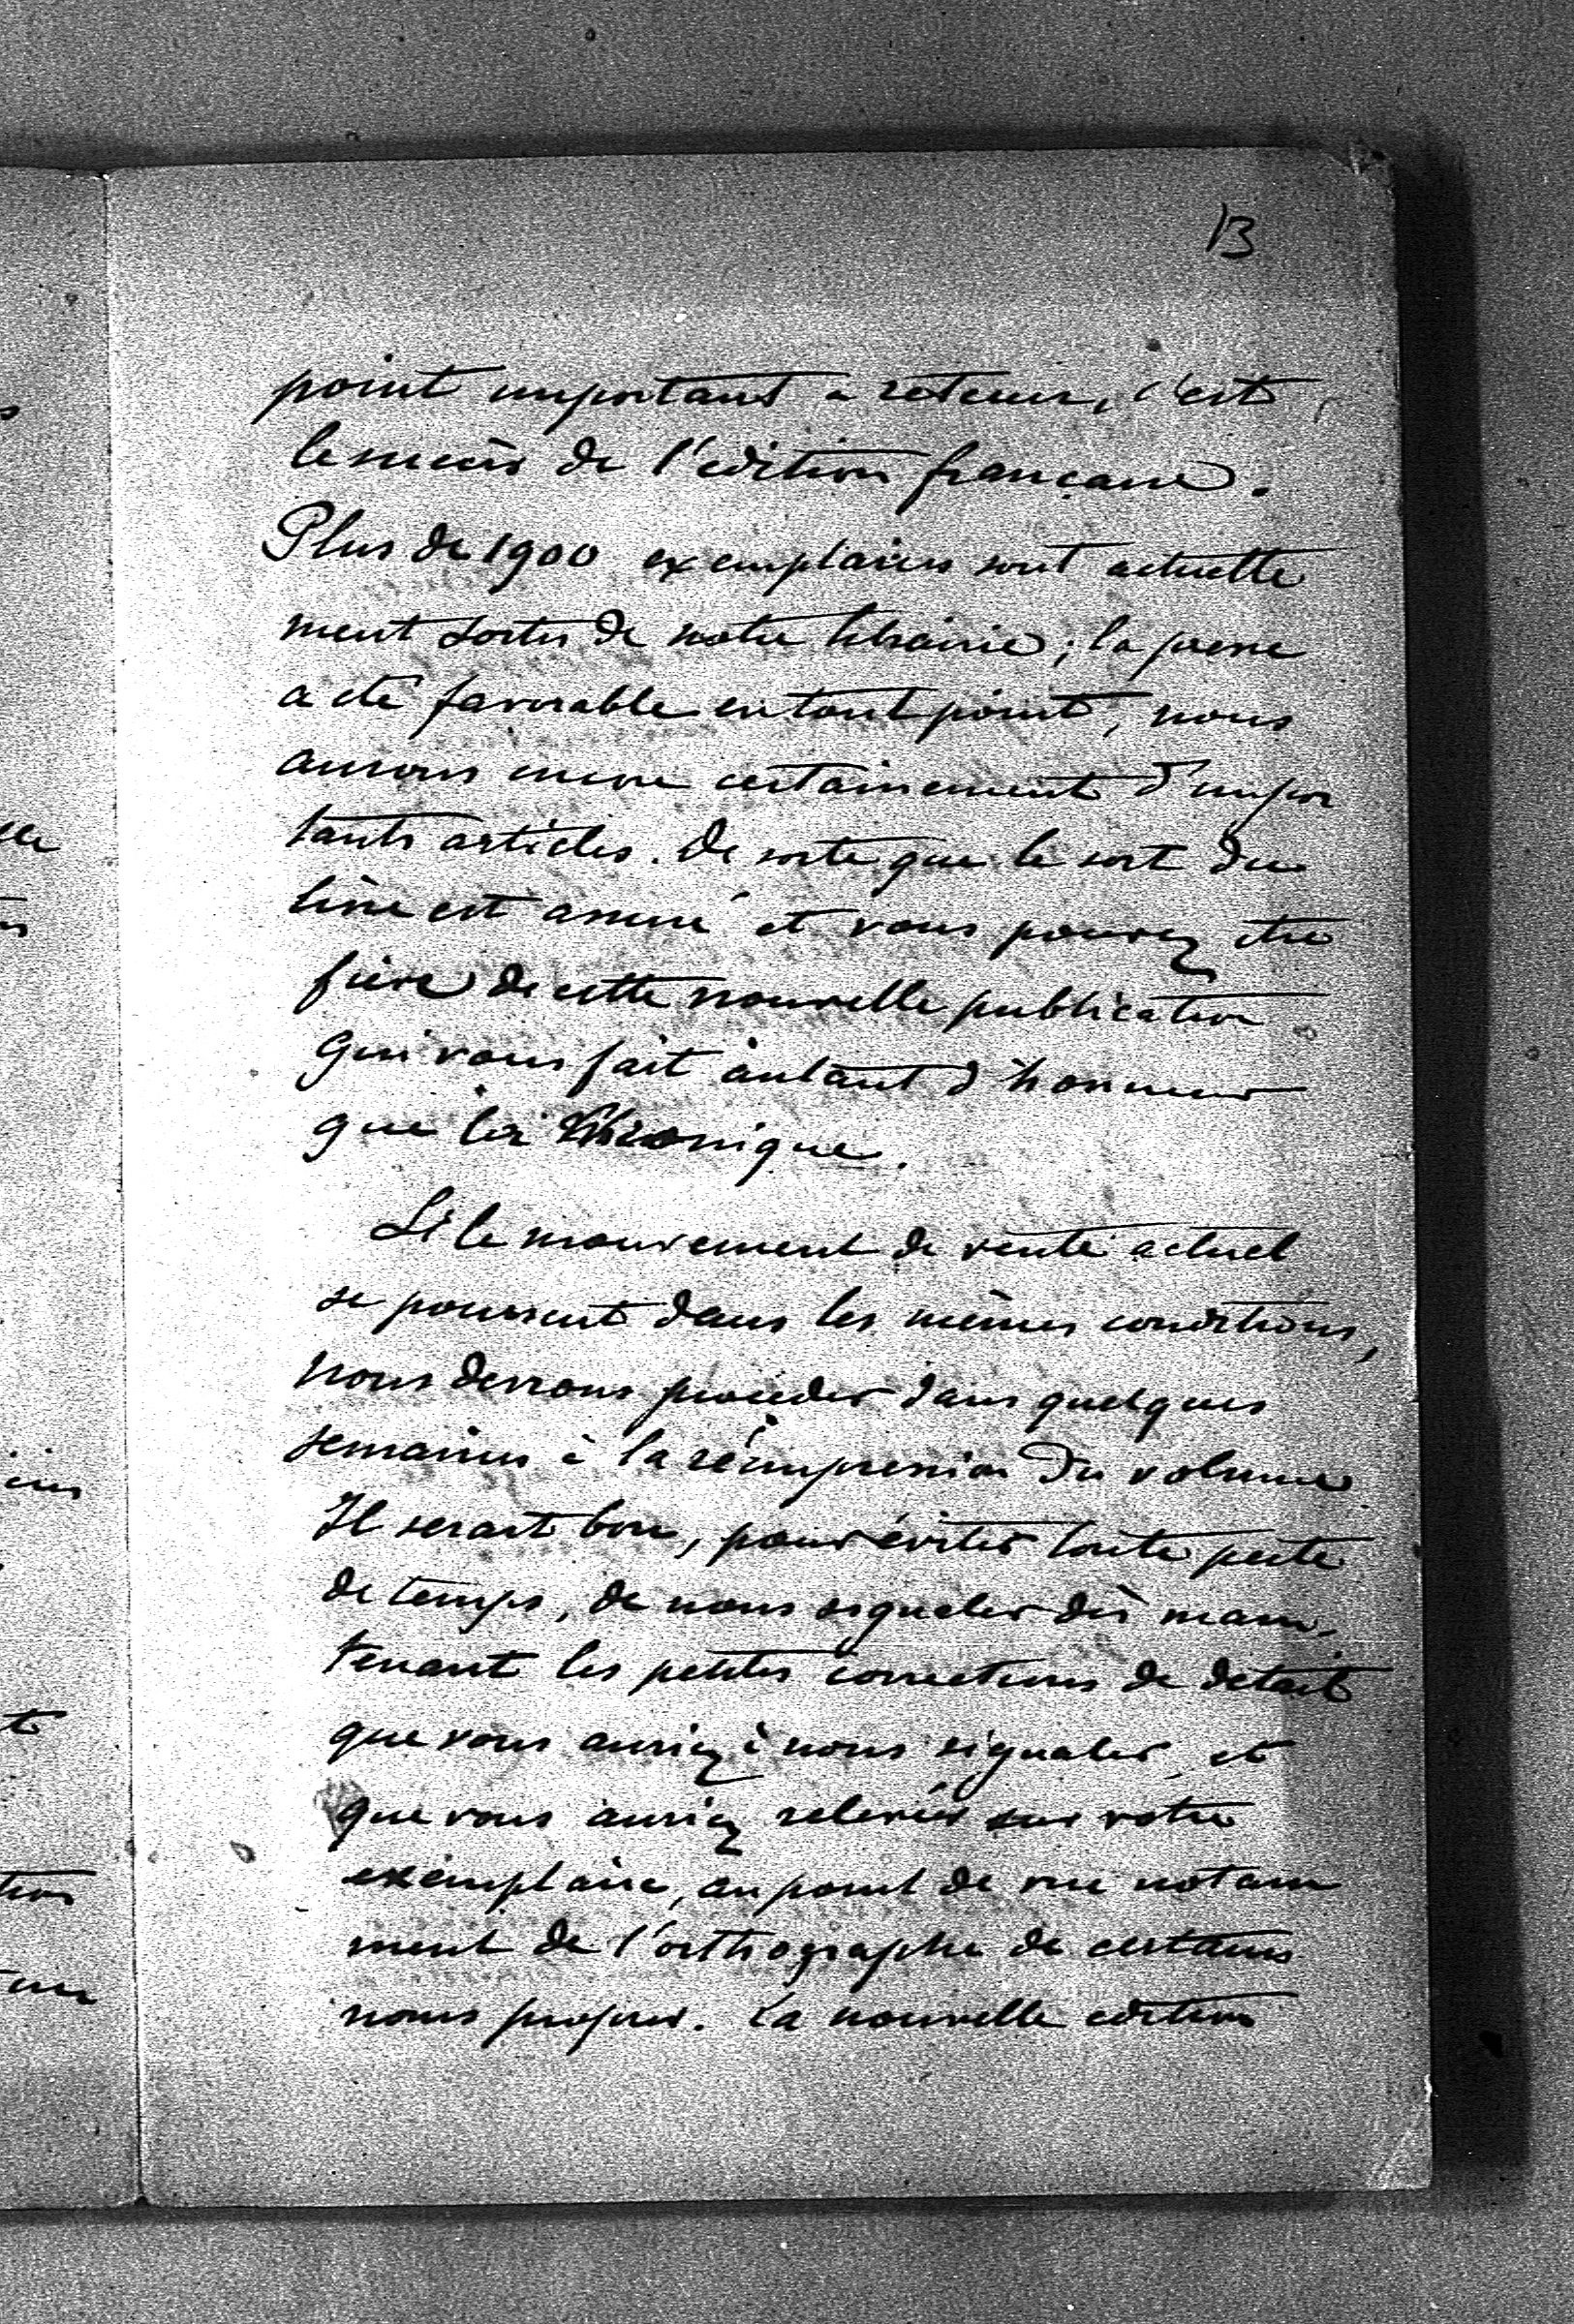 13
point important à retenir, c'est
le succès de l'édition française.
Plus de 1900 exemplaires sont actuelle
ment sortis de notre librairie; la presse
a été favorable en tout point, nous
aurons encore certainement d'impor
tants articles. De sorte que le sort du
livre est assuré et vous pouvez être
fière de cette nouvelle publication
qui vous fait autant d'honneur
que la Chronique.
Si le mouvement de vente actuel
se poursuit dans les mêmes conditions,
nous devrons procéder dans quelques
semaines à la réimpression du volume
Il serait bon, pour éviter toute perte
de temps, de nous signaler dès main-
tenant les petites corrections de détail
que vous auriez à nous signaler et
que vous auriez relevées sur votre
exemplaire, au point de vue notam
ment de l'orthographe de certains
noms propres. La nouvelle édition